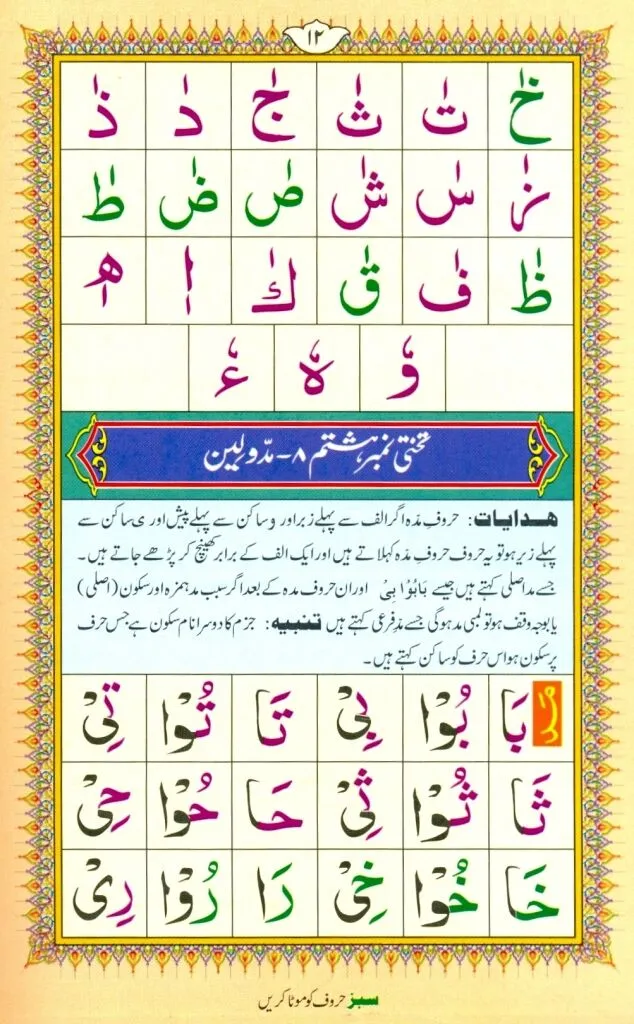 ۱۲
خٰ تٰ ثٰ جٰ دٰ ذٰ
زٰ سٰ شٰ صٰ ضٰ طٰ
ظٰ فٰ قٰ كٰ اٖ هٖ
وٗ هٗ ءٗ
تختی نمبر ہشتم ۸ - مدّ ولین
ہدایات: حروفِ مدّہ اگر الف سے پہلے زبر اور و ساکن سے پہلے پیش اور ی ساکن سے
پہلے زیر ہو تو یہ حروف حروفِ مدّہ کہلاتے ہیں اور ایک الف کے برابر کھینچ کر پڑھے جاتے ہیں۔
جسے مد اصلی کہتے ہیں جیسے بَا بُوْا بِیْ اور ان حروف مدہ کے بعد اگر سبب مد ہمزہ اور سکون (اصلی)
یا بوجہ وقف ہو تو لمبی مد ہوگی جسے مدِ فرعی کہتے ہیں تنبیہ: جزم کا دوسرا نام سکون ہے جس حرف
پر سکون ہو اس حرف کو ساکن کہتے ہیں۔
مدہ بَا بُوْا بِیْ تَا تُوْا تِیْ
ثَا ثُوْا ثِیْ حَا حُوْا حِیْ
خَا خُوْا خِیْ رَا رُوْا رِیْ
سبز حروف کو موٹا کریں